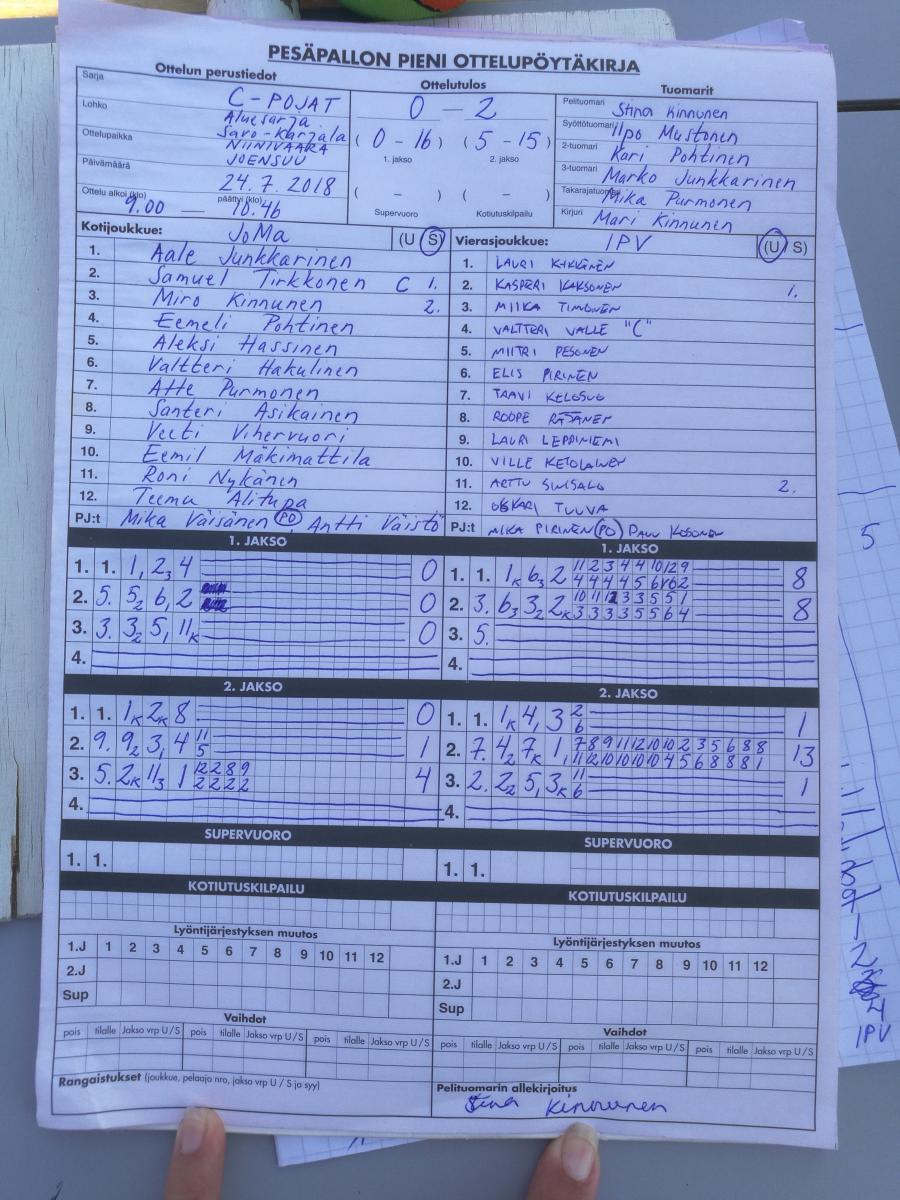 PESÄPALLON PIENI OTTELUPÖYTÄKIRJA
Ottelun perustiedot
Sarja C-POJAT
Lohko Aluesarja
Savo-Karjala
Ottelupaikka NIINIVAARA
JOENSUU
Päivämäärä 24.7.2018
Ottelu alkoi (klo) päättyi (klo)
9.00 — 10.46
Ottelutulos
0 – 2
(0 – 16) (5 – 15)
1. jakso 2. jakso
( – ) ( – )
Supervuoro Kotiutuskilpailu
Tuomarit
Pelituomari Stina Kinnunen
Syöttötuomari Ilpo Mustonen
2-tuomari Kari Pohtinen
3-tuomari Marko Junkkarinen
Takarajatuomari Mika Purmonen
Kirjuri Mari Kinnunen
Kotijoukkue: JoMa (U S)
1. Aale Junkkarinen
2. Samuel Tirkkonen C 1.
3. Miro Kinnunen 2.
4. Eemeli Pohtinen
5. Aleksi Hassinen
6. Valtteri Hakulinen
7. Atte Purmonen
8. Santeri Asikainen
9. Veeti Vihervuori
10. Eemil Mäkimattila
11. Roni Nykänen
12. Teemu Alitupa
PJ:t Mika Väisänen PO, Antti Väistö
Vierasjoukkue: IPV (U S)
1. LAURI
2. KASPERI KAKSONEN 1.
3. MIIKA TIMONEN
4. VALTTERI VALLE "C"
5. MIITRI PESONEN
6. ELIS PIRINEN
7. TAAVI KELOSUO
8. ROOPE RÄSÄNEN
9. LAURI LEPPINIEMI
10. VILLE KETOLAINEN
11. ARTTU SINISALO 2.
12. OSKARI TUUVA
PJ:t MIKA PIRINEN PO
1. JAKSO
1. 1. 1, 2, 4 0
2. 5. 5₂ 6, 2 0
3. 3. 3₂ 5, 11ₖ 0
4.
1. JAKSO
1. 1. 1ₖ 6₃ 2 11 2 3 4 4 10 12 9 8
4 4 4 4 5 6 10 2
2. 3. 6₃ 3₂ 2ₖ 10 11 12 3 3 5 5 1 8
3 3 3 3 5 5 6 4
3. 5.
4.
2. JAKSO
1. 1. 1ₖ 2ₖ 8 0
2. 9. 9₂ 3, 4 11 1
5
3. 5. 2ₖ 11₃ 1 12 2 8 9 4
2 2 2 2
4.
2. JAKSO
1. 1. 1ₖ 4, 3 2 1
6
2. 7. 4₂ 7ₖ 1, 7 8 9 11 12 10 10 2 3 5 6 8 8 13
11 12 10 10 10 10 4 5 6 8 8 8 1
3. 2. 2₂ 5, 3ₖ 11 1
6
4.
SUPERVUORO
1. 1.
SUPERVUORO
1. 1.
KOTIUTUSKILPAILU
KOTIUTUSKILPAILU
Lyöntijärjestyksen muutos
1.J 1 2 3 4 5 6 7 8 9 10 11 12
2.J
Sup
Lyöntijärjestyksen muutos
1.J 1 2 3 4 5 6 7 8 9 10 11 12
2.J
Sup
Vaihdot
pois tilalle Jakso vrp U/S pois tilalle Jakso vrp U/S pois tilalle Jakso vrp U/S
Vaihdot
pois tilalle Jakso vrp U/S pois tilalle Jakso vrp U/S pois tilalle Jakso vrp U/S
Rangaistukset (joukkue, pelaaja nro, jakso vrp U / S ja syy)
Pelituomarin allekirjoitus
Stina Kinnunen
5
IPV